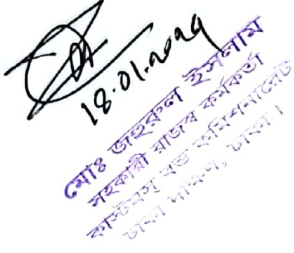 18.01.2029
মোঃ জহুরুল ইসলাম
সহকারী রাজস্ব কর্মকর্তা
কাস্টমস্ বন্ড কমিশনারেট
ঢাকা দক্ষিণ, ঢাকা।